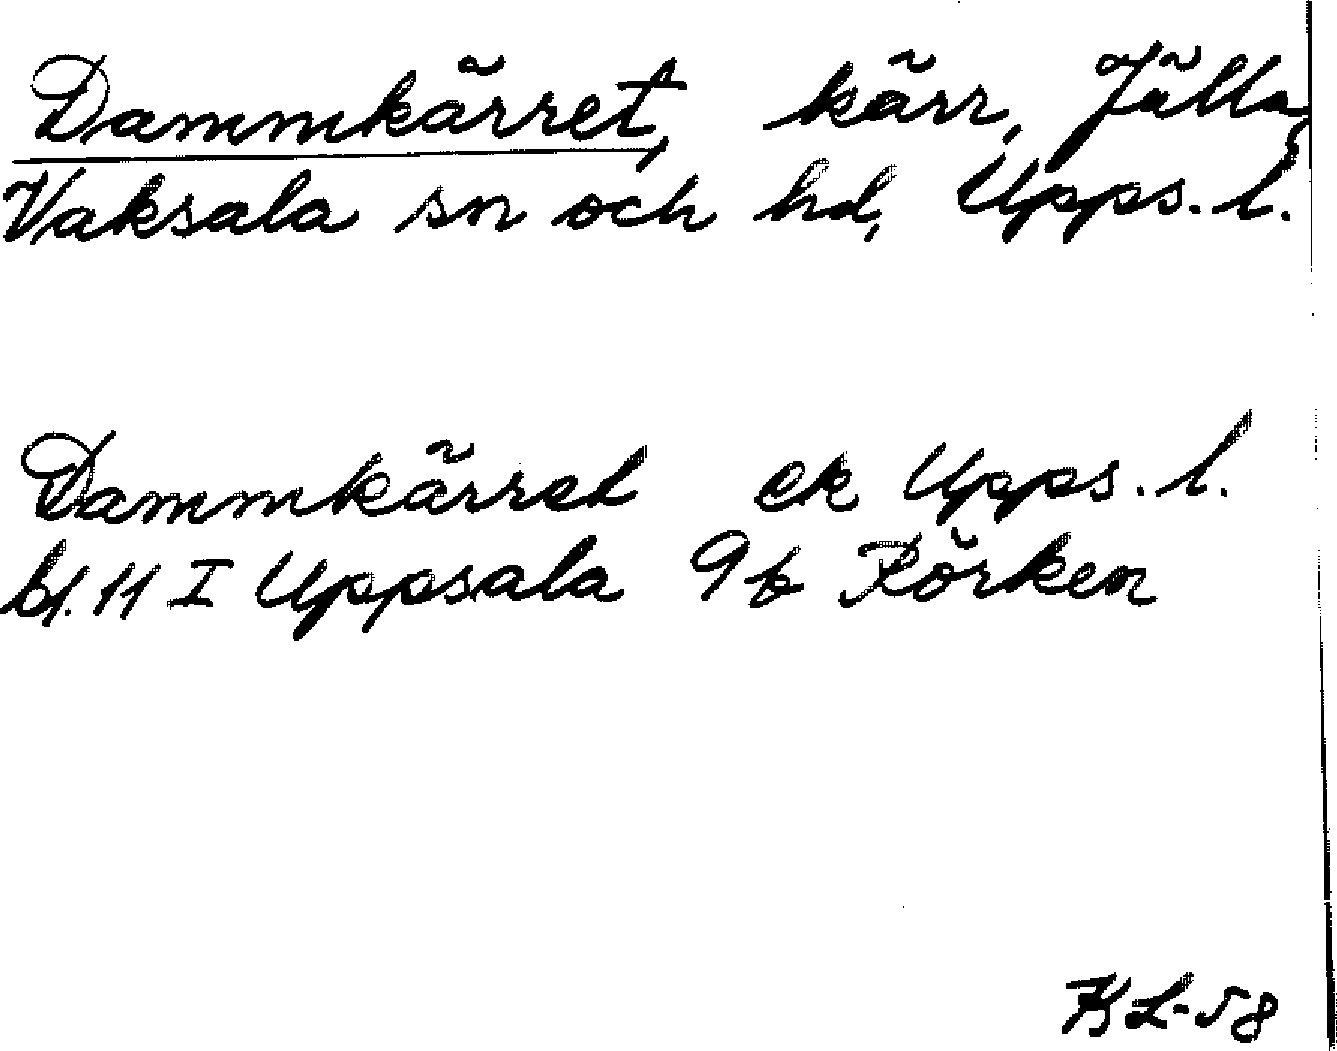 Dammkärret, kärr, Jälla,
Vaksala sn och hd, Upps. l.
Dammkärret ek Upps. l.
bl. 11 I Uppsala 9 b Rörken
KL-58